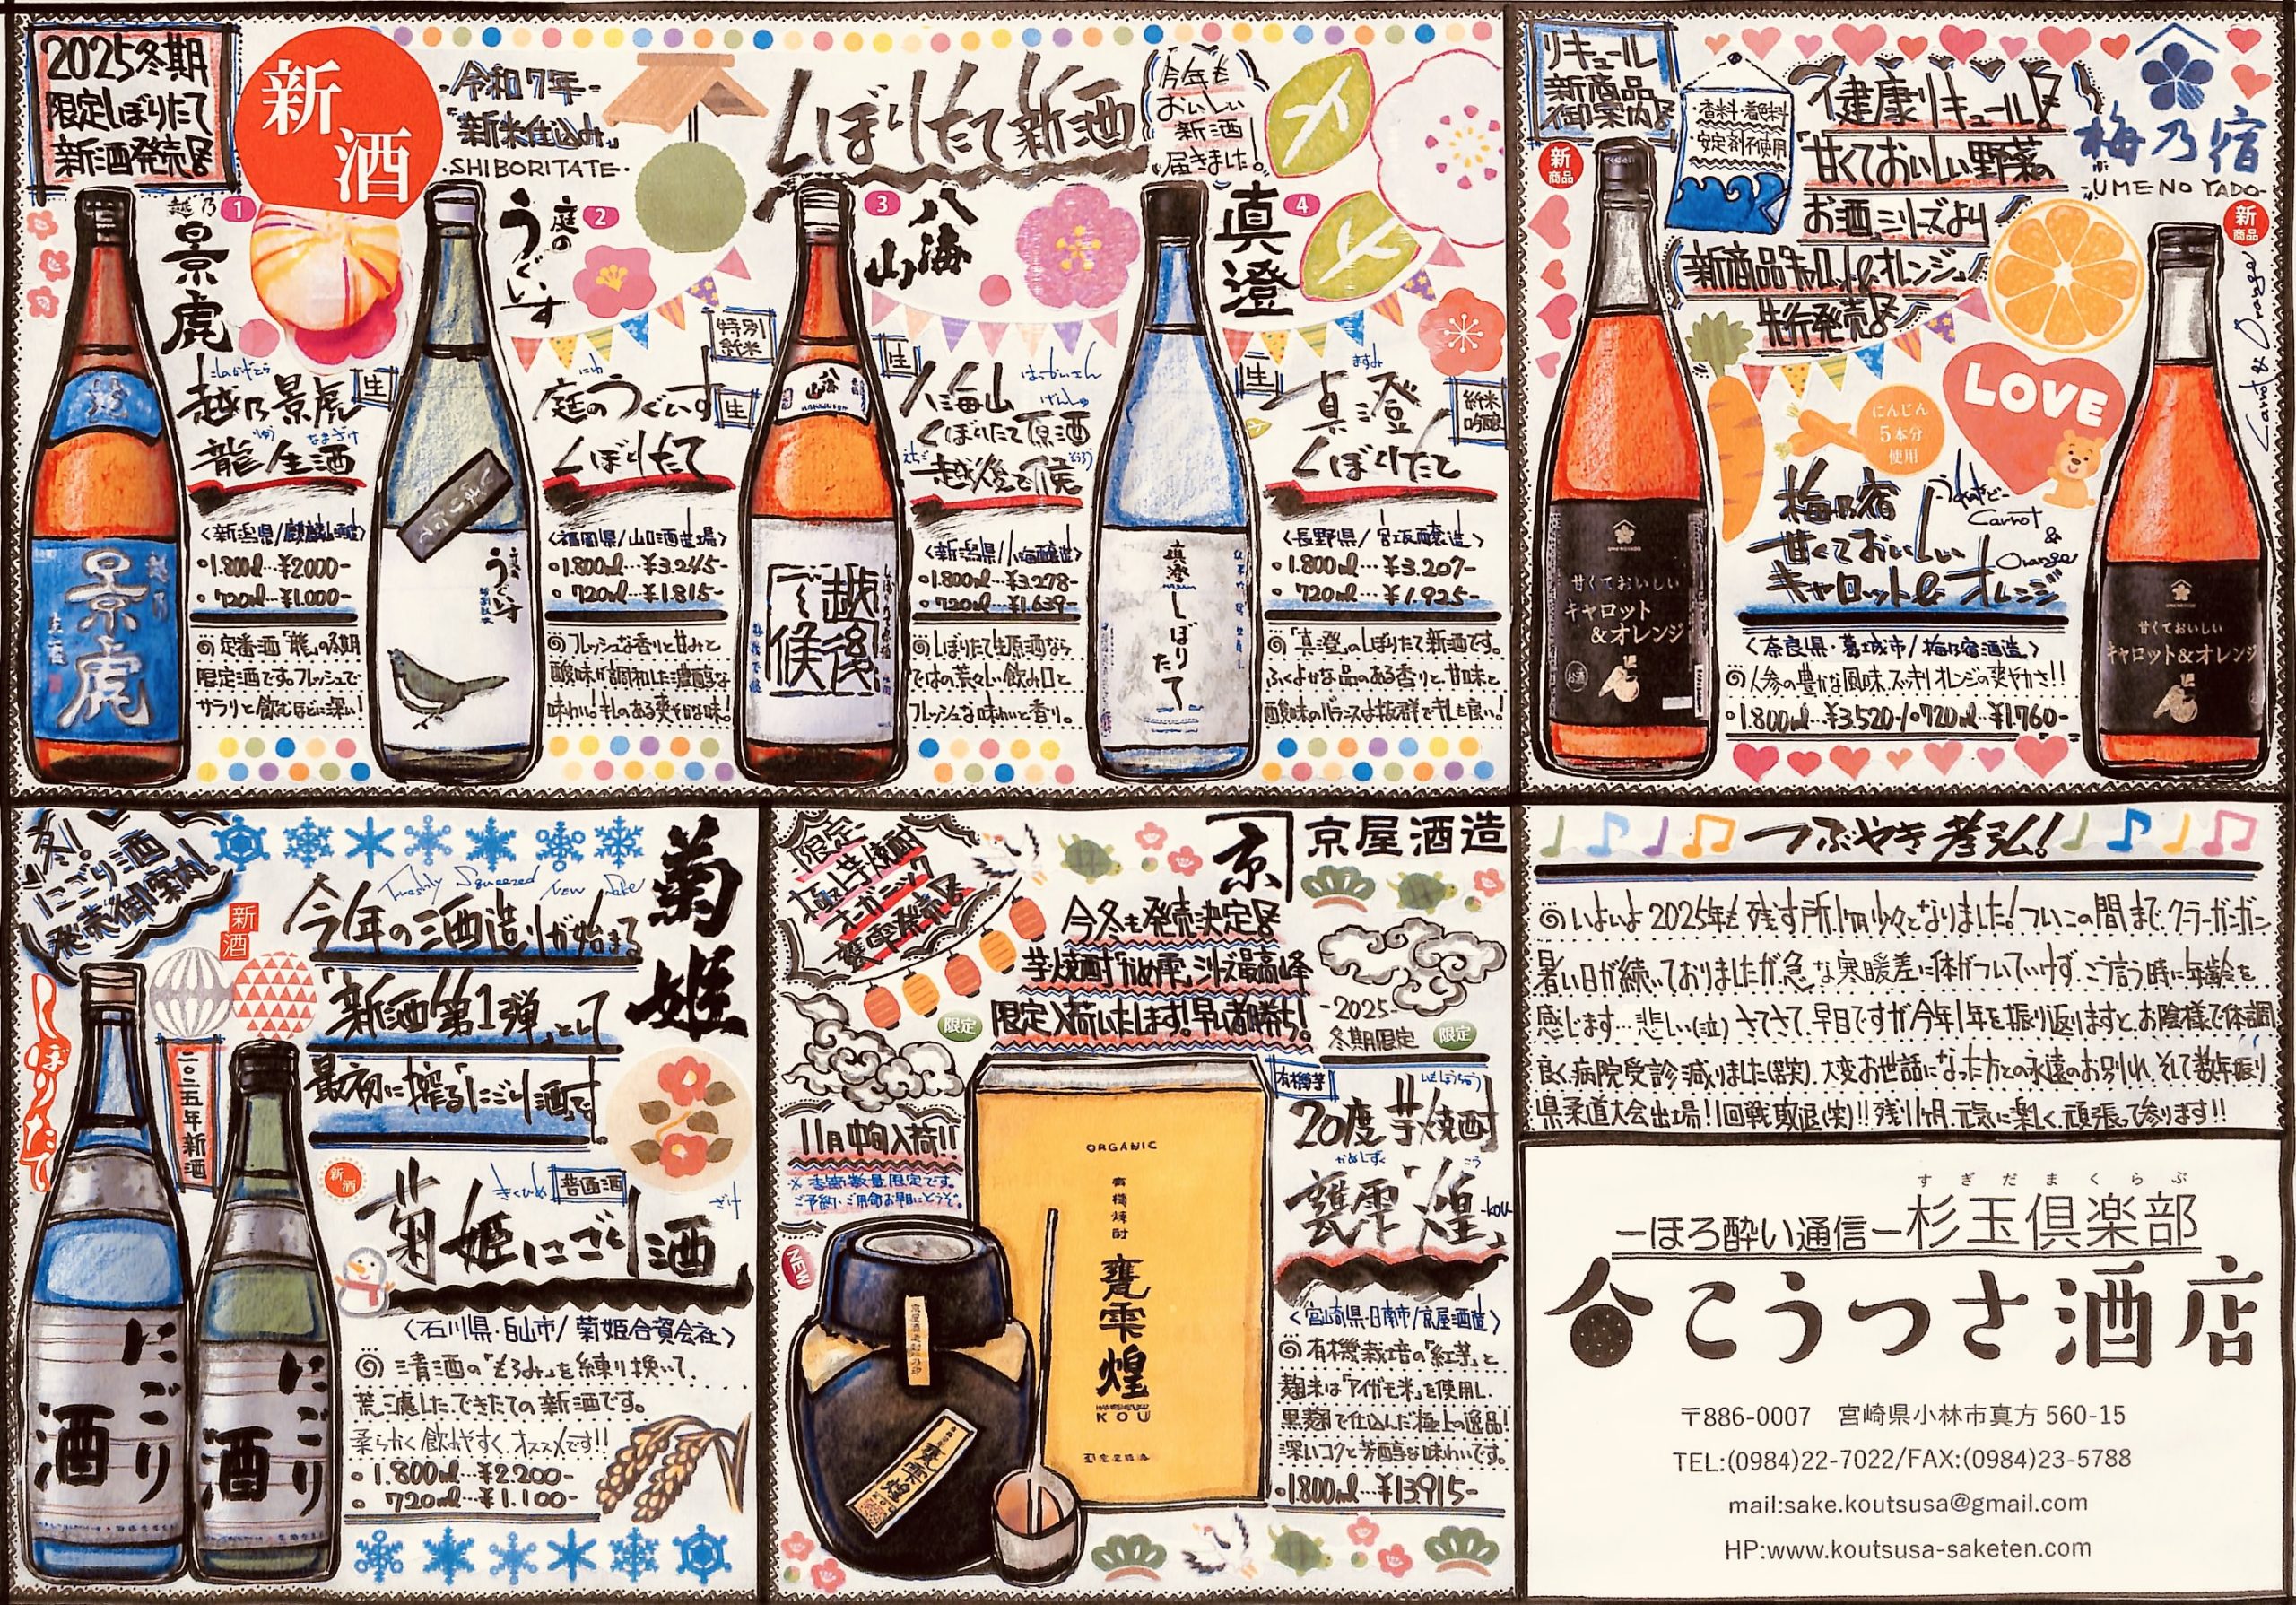 2025冬期
限定しぼりたて
新酒発売!!
新酒
-令和7年-
「新米仕込み」
・SHIBORITATE・
しぼりたて新酒
今年も
おいしい
新酒
届きました!
越乃
景虎
1
越乃景虎
生
龍 生酒
<新潟県/
・1.800ml…¥2000-
・720ml…¥1.000-
◎定番酒「龍」の冬期
限定酒です。フレッシュで
サラリと飲むほどに深い!
越乃
景虎
庭の
うぐいす
2
特別
純米
にわ
庭のうぐいす
生
しぼりたて
<福岡県/山口酒造場>
・1.800ml…¥3.245-
・720ml…¥1.815-
◎フレッシュな香りと甘みと
酸味が調和した濃醇な
味わい!キレのある爽やかな味!
しぼりたて
うぐいす
3
八海山
生
はっかいさん
八海山
げんしゅ
しぼりたて原酒
えちご
越後で候
<新潟県/八海醸造>
・1.800ml…¥3.278-
・720ml…¥1.639-
◎しぼりたて生原酒なら
ではの荒々しい飲み口と
フレッシュな味わいと香り。
八海山
越後で候
真澄
4
生
ますみ
真澄
純米
吟醸
しぼりたて
<長野県/宮坂醸造>
・1.800ml…¥3.207-
・720ml…¥1.925-
◎「真澄」のしぼりたて新酒です。
ふくよかな品のある香りと甘味と
酸味のバランスは抜群でキレも良い!
真澄
しぼりたて
リキュール
新商品
御案内!!
・香料・着色料
・安定剤不使用
健康リキュール!!
「甘くておいしい野菜の
お酒」シリーズより
新商品「キャロット&オレンジ」
先行発売!!
梅乃宿
-UMENOYADO-
新商品
新商品
Carrot & Orange
LOVE
にんじん
5本分
使用
梅乃宿
甘くておいしい
キャロット&オレンジ
Carrot
&
Orange
<奈良県・葛城市/梅乃宿酒造>
◎人参の豊かな風味、スッキリオレンジの爽やかさ!!
・1.800ml…¥3.520-/・720ml…¥1760-
甘くておいしい
キャロット
&オレンジ
お酒
甘くておいしい
キャロット&オレンジ
冬!
にごり酒
発売御案内!
Freshly Squeezed New Sake
今年の酒造りが始まる
「新酒第1弾」として
最初に搾る「にごり酒」です
菊姫
新酒
しぼりたて
二〇二五年新酒
新酒
きくひめ
普通酒
ざけ
菊姫にごり酒
<石川県・白山市/菊姫合資会社>
◎清酒の「もろみ」を練り挽いて、
荒ごししたできたての新酒です。
柔らかく飲みやすく、オススメです!!
・1.800ml…¥2.200-
・720ml…¥1.100-
にごり酒
にごり酒
限定
極上芋焼酎
オーガニック
甕雫発売!!
京
京屋酒造
今冬も発売決定!!
芋焼酎「かめ雫」シリーズ最高峰
限定入荷いたします!早い者勝ち!
-2025-
冬期限定
限定
限定
11月中旬入荷!!
※季節数量限定です。
ご予約・ご用命お早めにどうぞ。
NEW
ORGANIC
有機焼酎
甕雫
煌
KOU
甕雫煌
有機芋
いもしょうちゅう
20度芋焼酎
かめしずく
こう
甕雫「煌」
-kou-
<宮崎県・日南市/京屋酒造>
◎有機栽培の「紅芋」と
麹米は「アイガモ米」を使用し、
黒麹で仕込んだ極上の逸品!
深いコクと芳醇な味わいです。
・1.800ml…¥13.915-
つぶやき孝弘!
◎いよいよ2025年も残す所1ヶ月少々となりました!ついこの間までクーラーガンガン
暑い日が続いておりましたが急な寒暖差に体がついていけず、ご言う時に年齢を
感じます…悲しい(泣)さてさて、早目ですが今年1年を振り返りますと、お陰様で体調
良く病院受診減りました(笑)。大変お世話になった方との永遠のお別れ、そして数年振り
県柔道大会出場!1回戦敗退(笑)!!残り1ヶ月、元気に楽しく頑張って参ります!!
すぎだまくらぶ
ーほろ酔い通信ー杉玉倶楽部
こうつさ酒店
〒886-0007 宮崎県小林市真方 560-15
TEL:(0984)22-7022/FAX:(0984)23-5788
mail:sake.koutsusa@gmail.com
HP:www.koutsusa-saketen.com